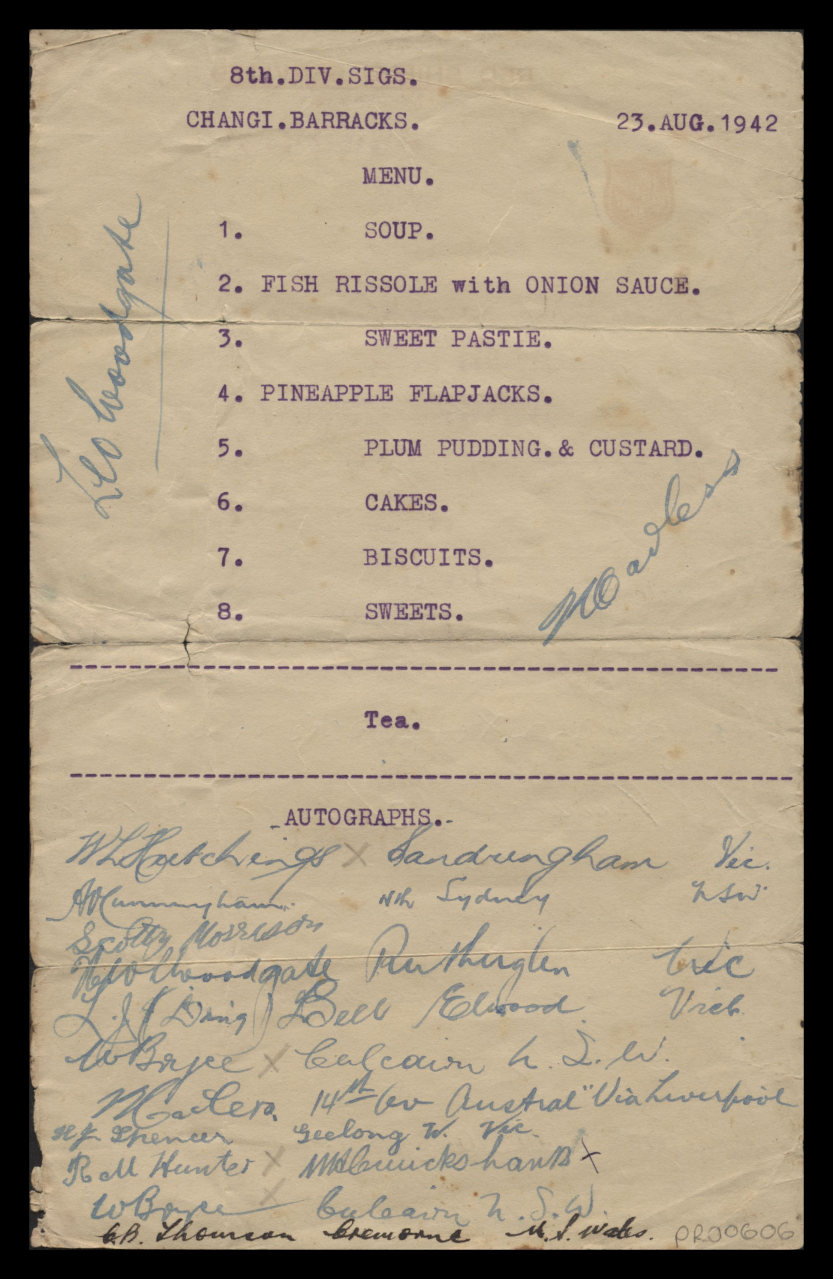 8th.DIV.SIGS.
CHANGI.BARRACKS. 23.AUG.1942
MENU.
1. SOUP.
2. FISH RISSOLE with ONION SAUCE.
3. SWEET PASTIE.
4. PINEAPPLE FLAPJACKS.
5. PLUM PUDDING.& CUSTARD.
6. CAKES.
7. BISCUITS.
8. SWEETS.
Leo Woodgate
Tea.
AUTOGRAPHS.-
WLHutchings x Sandringham Vic.
Cunningham. Nth Sydney NSW
Scotty Morrison
Woodgate Rutherglen Vic
L.J. (Ding) Bell Elwood. Vict.
WBoyce x Culcairn N.S.W.
14th Av Austral" Via Liverpool
H.J. Spencer Geelong W. Vic.
R M Hunter x Cruickshank x
WBoyce x Culcairn N.S.W.
C.B. Thomson Cremorne N.S. Wales. PR00606